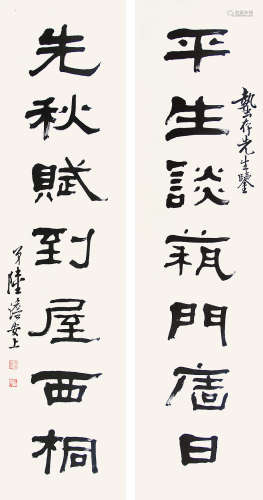 蟄存先生鑒
平生談門日
先秋賦到屋西桐
弟陸澹安上